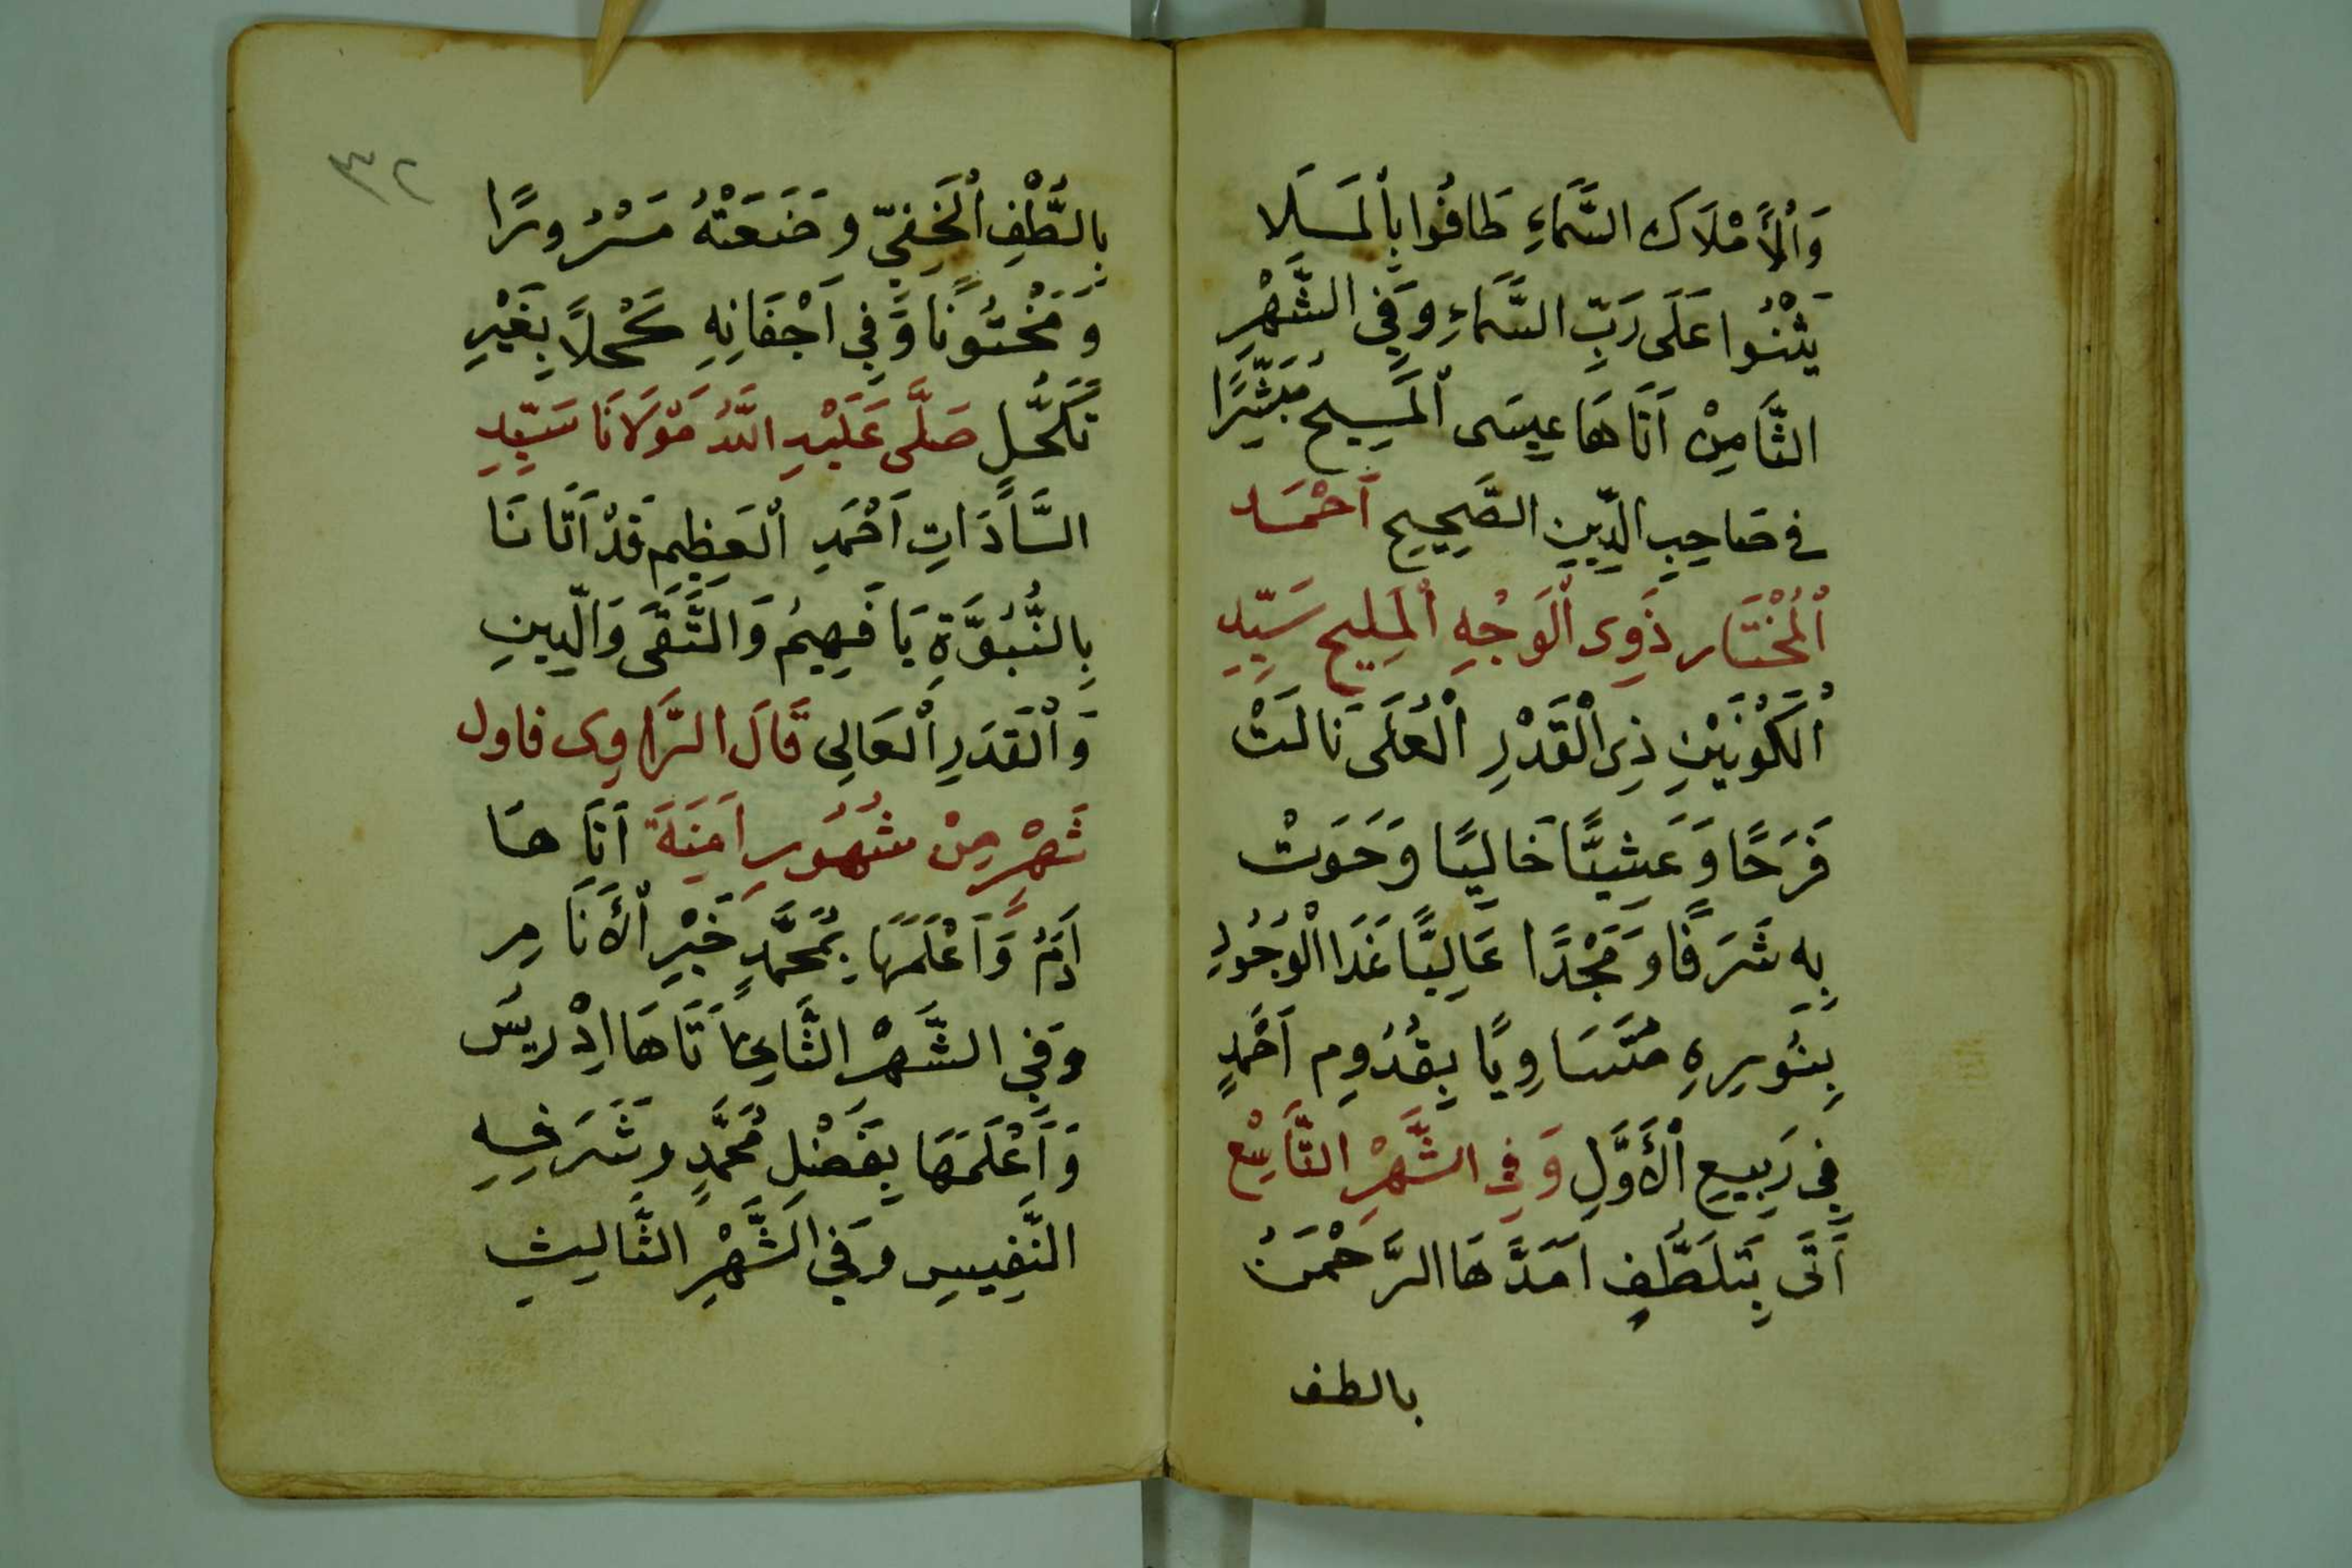 وَاْلأَمْلَاكَ السَّمَاءِ طَافُوا بِالْمَسَلَا
يَثْنُوا عَلَى رَبِّ السَّمَاءِ وَفِي الشَّهْرِ
الثَّامِنْ اَتَاهَا عِيسَى الْمَسِيح مُبَشِّرًا
فى صَاحِبِ الدِّينِ الصَّحِيحِ اَحْمَد
اْلمُخْتَار ذَوِى اْلوَجْهِ اْلمَلِيح سَيِّدِ
اْلكَوْنَيْنِ ذِى الْقَدْرِ اْلعُلَى نَالَتْ
فَرَحًا وَعَشِيًّا خَالِيًا وَحَوَتْ
بِهِ شَرَفًا وَمَجْدًا عَالِيًّا غَدَا الْوُجُودِ
بِنُورِهِ مُتَسَاوِيًا بِقُدُومِ اَحْمَدٍ
فِي رَبِيعِ اْلأَوَّلِ وَفِى الشَّهْرِ التَّاسِعْ
اَتَى بَتَلَطُّفٍ اَمَدَّهَا الرَّحْمَنُ
بالطف
٣٢
بِالُّطْفِ اْلخَفِيّ وَضَعَتْهُ مَسْرُورًا
وَمَخْتُونًا وَفِي اَجْفَانِهِ كُحْلاً بِغَيْرِ
تَكَحُّلٍ صَلَّى عَلَيْهِ اللَّهُ مَوْلَانَا سَيِّدِ
السَّادَاتِ اَحْمَدِ الْعَظِيمِ قَدْ اَتَانَا
بِالنُّبُوَّةِ يَا فَهِيمُ وَالتَّقَى وَالّدِينِ
وَاْلقَدَرِ اْلعَالِى قَالَ الرَّاوِى فاول
شَهْرٍ مِنْ شُهُورِ اَمِنَةَ اَتَاهَا
اَدَمُ وَاَعْلَمَهَا بِمُحَمَّدٍ خَيْرِ اْلأَنَامِ
وَفِي الشَّهْرِ الثَّانِى اَتَاهَا اِدْرِيسُ
وَاَعْلَمَهَا بِفَضْلِ مُحَمَّدٍ وَشَرَفِهِ
النَّفِيسِ وَفِي الشَّهْرِ الثَّالِيثِ